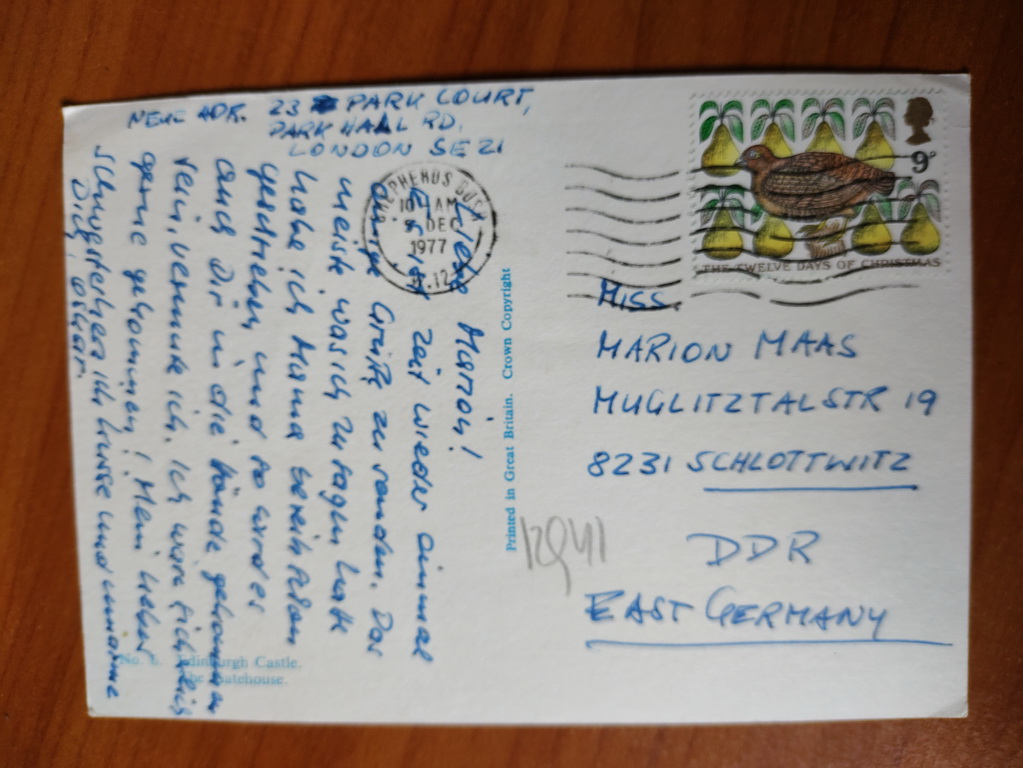 NEUE ADR. 23 PARK COURT,
PARK HALL RD.
LONDON SE 21
Liebe Marion!
Es ist Zeit wieder einmal
einige Grüße zu senden. Das
meiste, was ich zu sagen hatte
habe ich Mama bereits
geschrieben und so wird es
auch Dir in die Hände gekommen
sein, vermute ich. Ich wäre
gerne gekommen! Mein liebes
ich küsse und umarme
Dich,
No. 8. Edinburgh Castle.
The Gatehouse.
Printed in Great Britain. Crown Copyright
SHEPHERDS BUSH
10 AM
DEC
1977
W.12
9P
THE TWELVE DAYS OF CHRISTMAS
MISS.
MARION MAAS
MUGLITZTALSTR 19
8231 SCHLOTTWITZ
DDR
EAST GERMANY